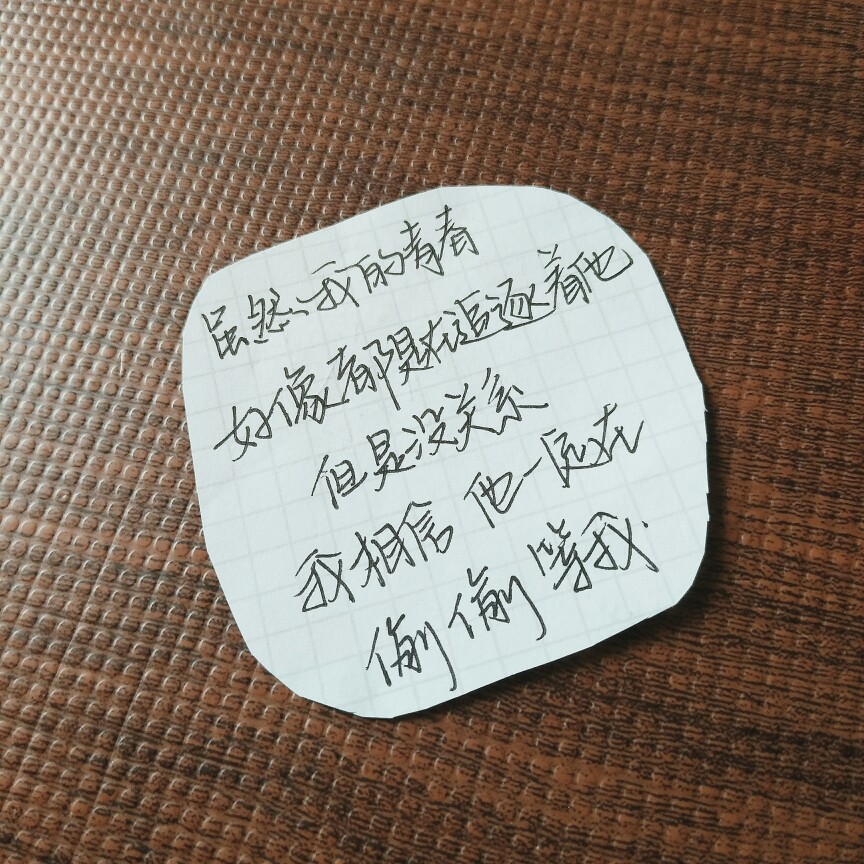 虽然、我的青春
好像都是在追逐着他
但是没关系
我相信 他一定在
偷偷等我.